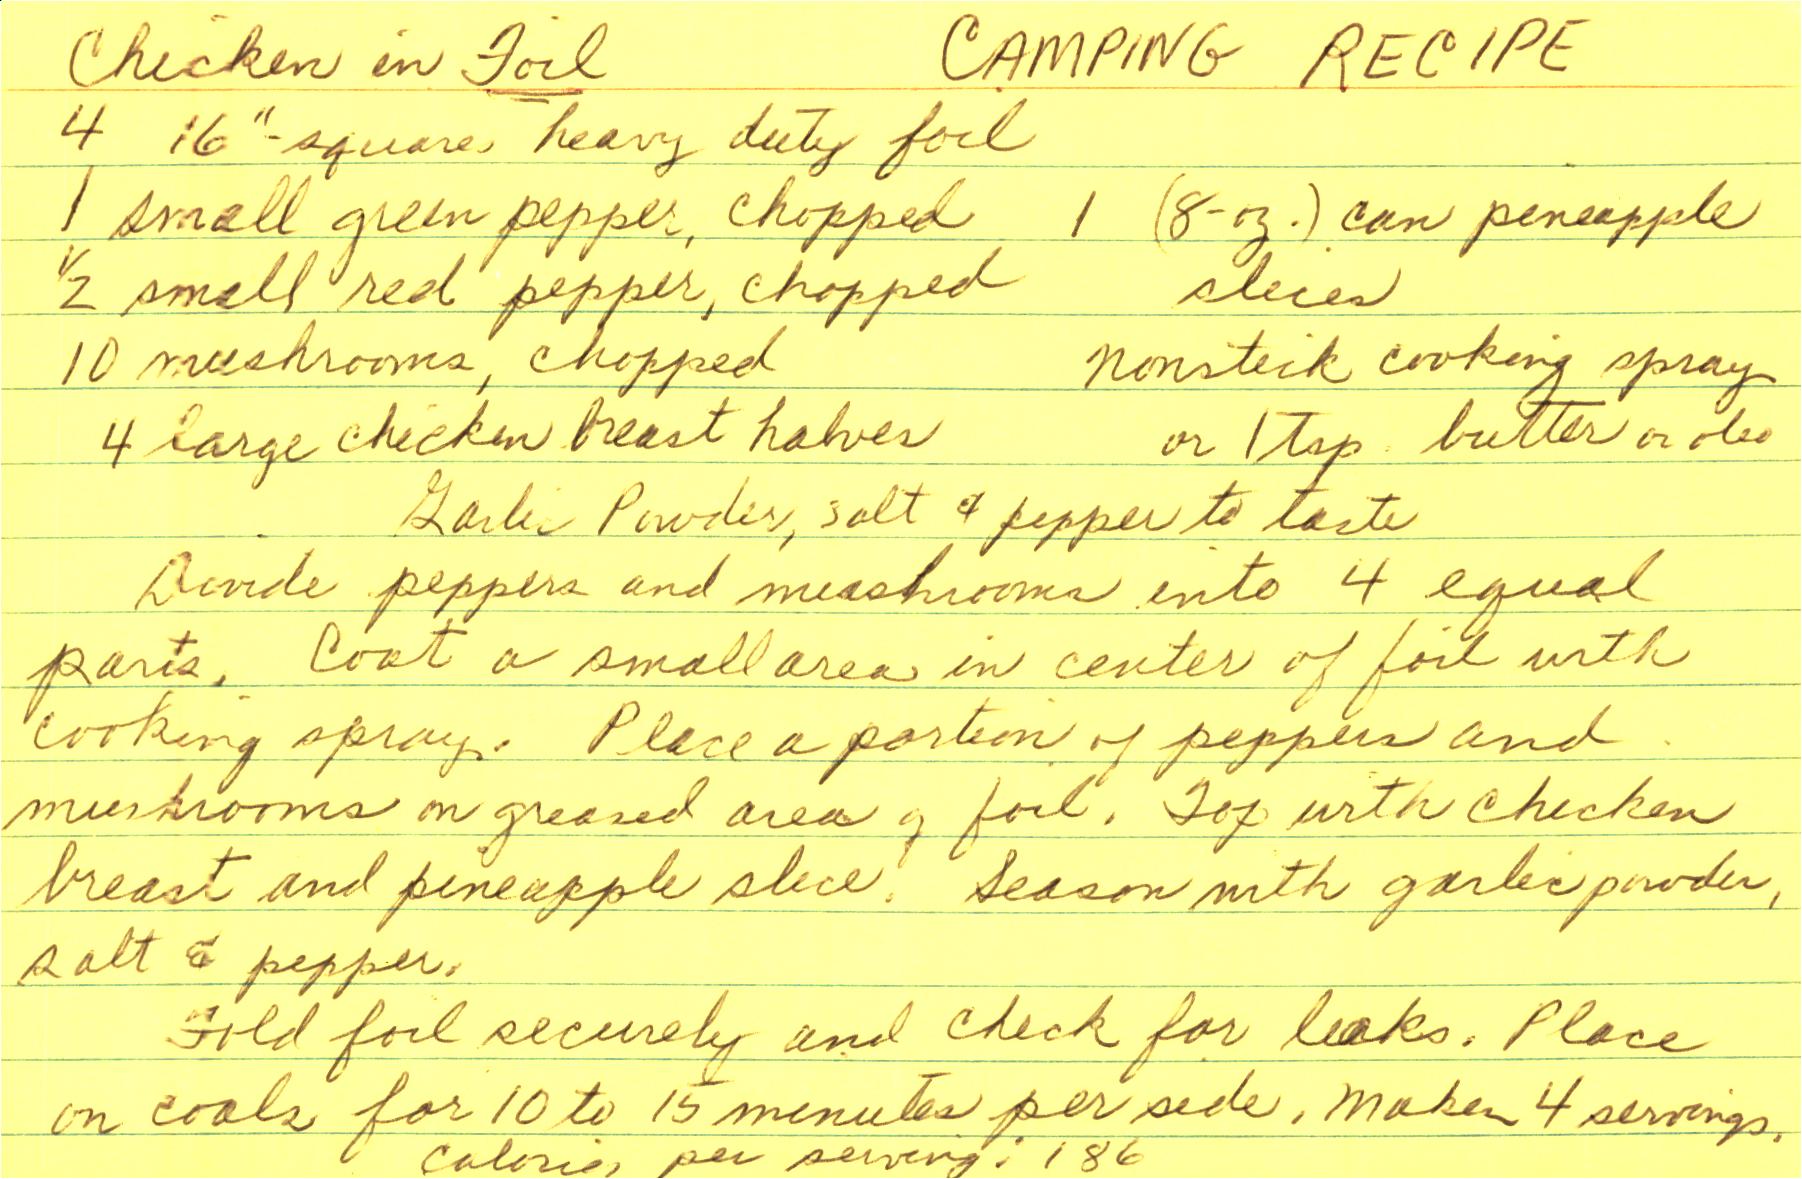 Chicken in Foil CAMPING RECIPE
4 16"-square heavy duty foil
1 small green pepper, chopped 1 (8-oz.) can pineapple
1/2 small red pepper, chopped slices
10 mushrooms, chopped nonstick cooking spray
4 large chicken breast halves or 1 tsp. butter or oleo
Garlic Powder, salt & pepper to taste
Divide peppers and mushrooms into 4 equal
parts. Coat a small area in center of foil with
cooking spray. Place a portion of peppers and
mushrooms on greased area of foil. Top with chicken
breast and pineapple slice. Season with garlic powder,
salt & pepper.
Fold foil securely and check for leaks. Place
on coals for 10 to 15 minutes per side. Makes 4 servings.
Calories per serving: 186